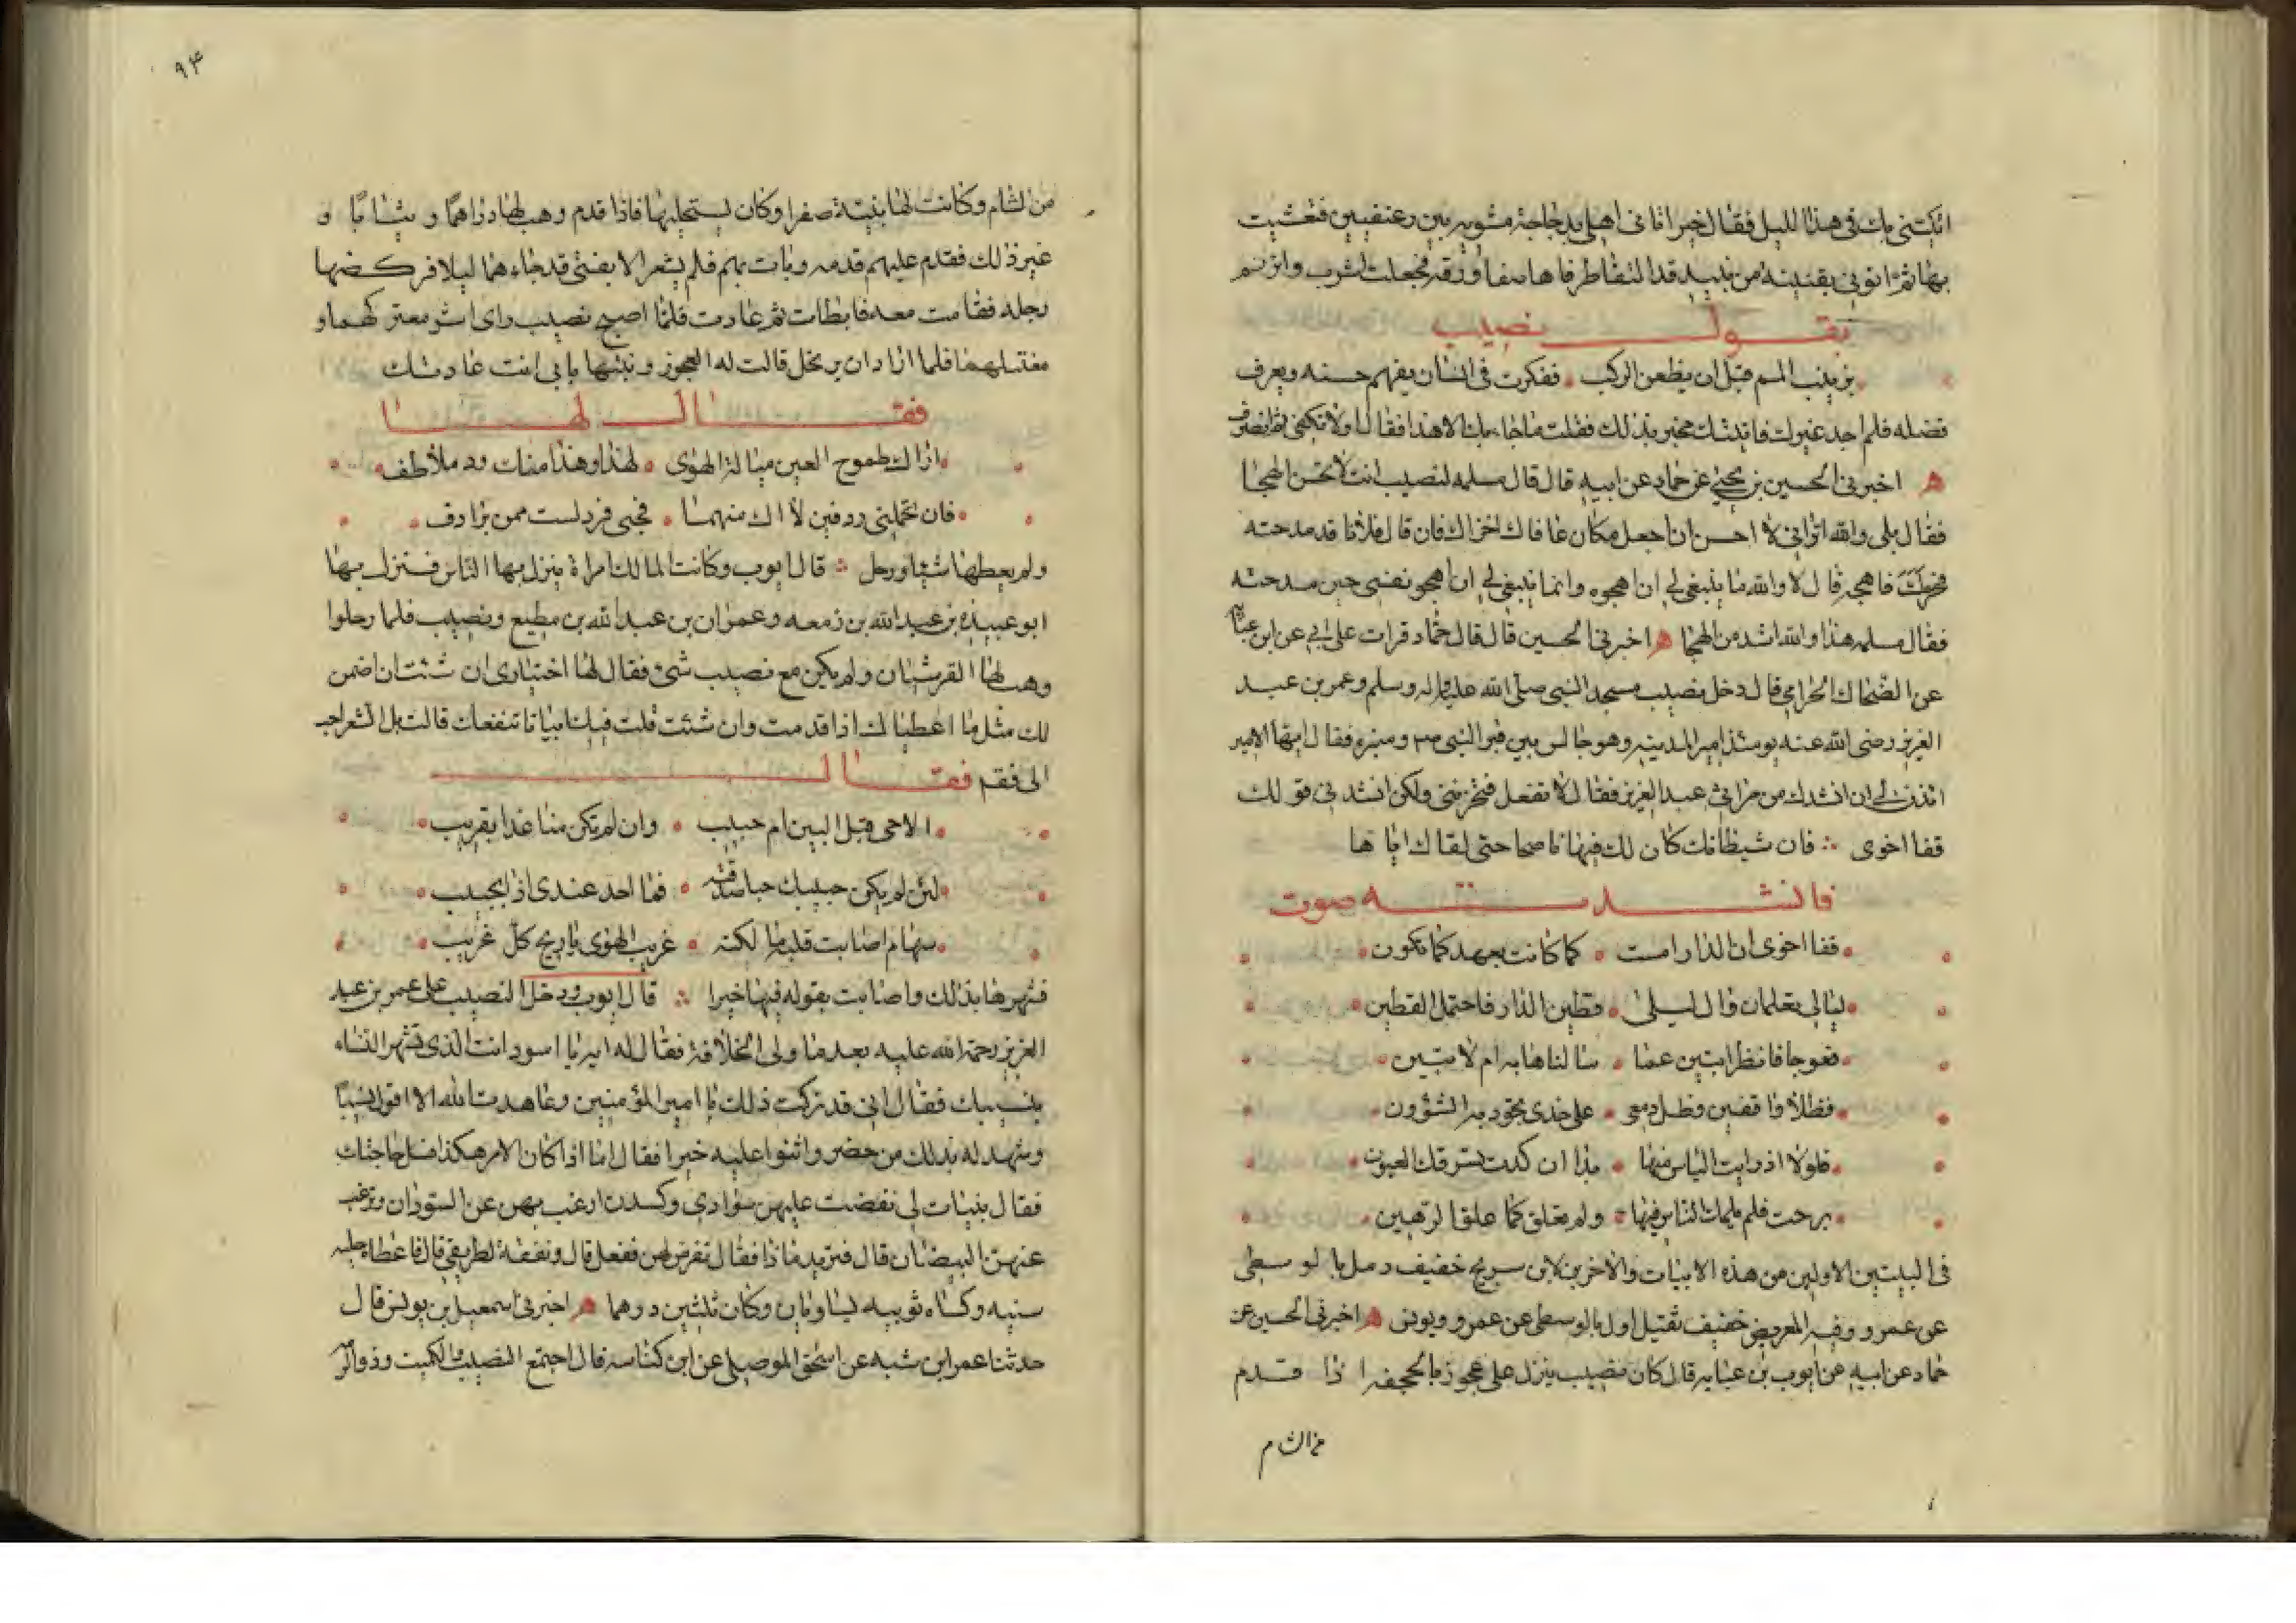 اتكتنى بك فى هذا الليل فقال خيرا اتانى اهلى بدجاجة مشويه بين رغيفين فتعشيت
بها ثم اتونى بقنينة من نبيذ قد التقا طرفاها صفا ورقه فجعلت اشرب واترنم
بقول نصيب
بزينب المم قبل ان يظعن الركب ففكرت فى انسان يفهم حسنه ويعرف
فضله فلم اجد غيرك فاتيتك مخبر بذلك فقلت ما جا بك الا هذا فقال اولا تكفى ثم انصرف
ه اخبرنى الحسين بن يحيى عن حماد عن ابيه قال قال مسلمه لنصيب انت لا تحسن الهجا
فقال بلى والله اترانى لا احسن ان اجعل مكان عافاك اخزاك فان قال فلانا قد مدحته
فحرمك فاهجه قال لا والله ما ينبغى لى ان اهجوه وانما ينبغى لى ان اهجو نفسى حين مدحته
فقال مسلمه هذا والله اشد من الهجا ه اخبرنى الحسين قال قال حماد قرات على ابى عن ابن عباية
عن الضحاك الحزامى قال دخل نصيب مسجد النبى صلى الله عليه واله وسلم وعمر بن عبد
العزيز رضى الله عنه يومئذ امير المدينه وهو جالس بين قبر النبى ص ومنبره فقال ايها الامير
ائذن لى ان انشدك من مراثى عبد العزيز فقال لا تفعل فتحزننى ولكن انشدنى قولك
قفا اخوى ∴ فان شيطانك كان لك فيها ناصحا حتى لقاك اياها
فانشدته صوت
قفا اخوى ان الدار امست كما كانت بعهد كما تكون
ليالى تعلمان وال ليلى قطين الدار فاحتمل القطين
فعوجا فانظرا تبين عما سالناها به ام لا تبين
فظلا واقفين وظل دمعى على خدى تجود به الشؤون
فلولا اذ رايت الياس منها بدا ان كدت تسرقك العيون
برحت فلم يلمك الناس فيها ولم تغلق كما علق الرهين
فى البيتين الاولين من هذه الابيات والاخرين لابن سريج خفيف رمل بالوسطى
عن عمرو وفيه للغريض خفيف ثقيل اول بالوسطى عن عمرو ويونس ه اخبرنى الحسين عن
حماد عن ابيه عن ايوب بن عبايه قال كان نصيب ينزل على عجوز بالجحفه اذا قدم
من الشام
٩٤
من الشام وكانت لها بنيتة صفرا وكان يستحليها فاذا قدم وهب لها دراهما وثيابا و
غير ذلك فقدم عليهم قدمه وبات بهم فلم يشعر الا بفتى قد جاءها ليلا فركضها
برجله فقامت معه فابطات ثم عادت فلما اصبح نصيب راى اثر معتركهما و
مغتسلهما فلما اراد ان يرتحل قالت له العجوز وبنتها بابى انت عادتك
فقال لها
اراك طموح العين ميالة الهوى لهذا وهذا منك ود ملاطف
فان تحملينى ردفين لا اك منهما فحبى فرد لست ممن يرادف
ولم يعطها شيئا ورحل ∴ قال ايوب وكانت لمالك امراة ينزل بها الناس فنزل بها
ابو عبيدة بن عبد الله بن زمعه وعمران بن عبد الله بن مطيع ونصيب فلما رحلوا
وهب لها القرشيان ولم يكن مع نصيب شىء فقال لها اختيارى ان شئت ان اضمن
لك مثل ما اعطياك اذا قدمت وان شئت قلت فيك ابياتا تنفعك قالت بل الشعر احب
الى فقم فقال
الا حى قبل البين ام حبيب وان لم تكن منا غدا بقريب
لئن لم يكن حبيك حبا صدقته فما احد عندى اذا بحبيب
سهام اصابت قلبه مالكية غريب الهوى يا ويح كل غريب
فشهرها بذلك واصابت بقوله فيها خيرا ∴ قال ايوب ودخل النصيب على عمر بن عبد
العزيز رحمة الله عليه بعد ما ولى الخلافة فقال له ايه يا اسود انت الذى تشهر النساء
بنسيبك فقال انى قد تركت ذلك يا امير المؤمنين وعاهدت الله الا اقول نسيبا
وشهد له بذلك من حضر واثنوا عليه خيرا فقال اما اذا كان الامر هكذا فسل حاجتك
فقال بنيات لى نفضت عليهن سوادى وكسدن ارغب بهن عن السودان وترغب
عنهن البيضان قال فتريد ماذا فقال تفرض لهن ففعل قال ونفقة لطريقى قال فاعطاه حليه
سيفه وكساه ثوبيه يساويان وكان ثلثين درهما ه اخبرنى اسمعيل بن يونس قال
حدثنا عمر ابن شبه عن اسحق الموصلى عن ابن كناسه قال اجتمع النصيب والكميت وذو الرمه